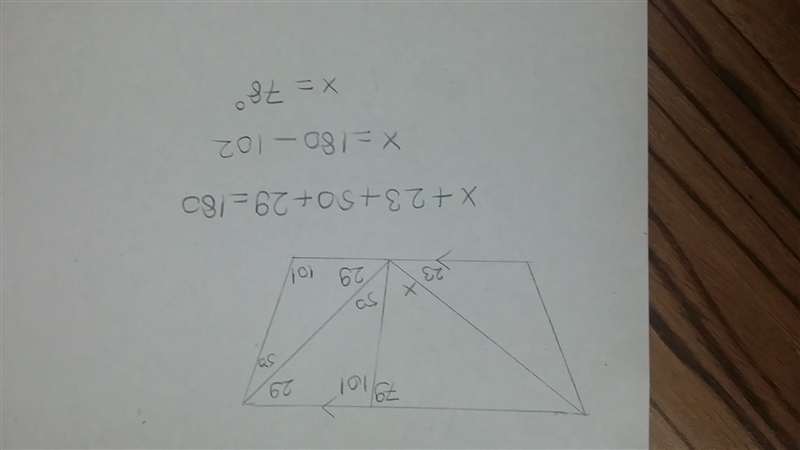 79 101 29
50
x 50
23 29 101
x + 23 + 50 + 29 = 180
x = 180 - 102
x = 78°